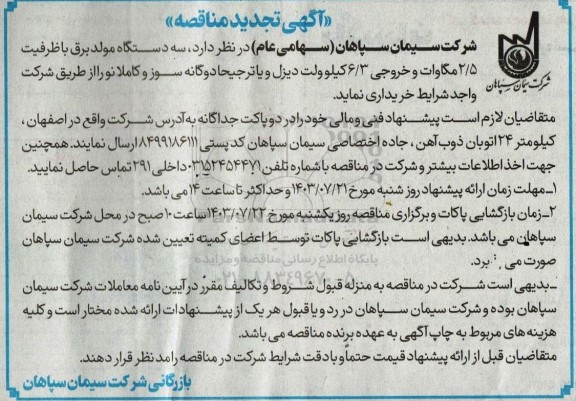 «آگهی تجدید مناقصه»
شرکت سیمان سپاهان
شرکت سیمان سپاهان (سهامی عام) در نظر دارد، سه دستگاه مولد برق با ظرفیت
۲/۵ مگاوات و خروجی ۶/۳ کیلو ولت دیزل و یا ترجیحا دوگانه سوز و کاملا نو را از طریق شرکت
واجد شرایط خریداری نماید.
متقاضیان لازم است پیشنهاد فنی و مالی خود را در دو پاکت جداگانه به آدرس شرکت واقع در اصفهان ،
کیلومتر ۲۴ اتوبان ذوب آهن ، جاده اختصاصی سیمان سپاهان کد پستی ۸۴۹۹۱۸۶۱۱۱ ارسال نمایند. همچنین
جهت اخذ اطلاعات بیشتر و شرکت در مناقصه با شماره تلفن ۰۳۱۵۲۴۵۴۴۷۱ داخلی ۲۹۱ تماس حاصل نمایید.
۱ـ مهلت زمان ارائه پیشنهاد روز شنبه مورخ ۱۴۰۳/۰۷/۲۱ و حداکثر تا ساعت ۱۴ می باشد.
۲ـ زمان بازگشایی پاکات و برگزاری مناقصه روز یکشنبه مورخ ۱۴۰۳/۰۷/۲۲ ساعت ۱۰ صبح در محل شرکت سیمان
سپاهان می باشد. بدیهی است بازگشایی پاکات توسط اعضای کمیته تعیین شده شرکت سیمان سپاهان
صورت می برد.
پایگاه اطلاع رسانی مناقصه و مزایده
۰۲۱-۸۸۳۴۹۶۷۰-۵
ـ بدیهی است شرکت در مناقصه به منزله قبول شروط و تکالیف مقرر در آیین نامه معاملات شرکت سیمان
سپاهان بوده و شرکت سیمان سپاهان در رد و یا قبول هر یک از پیشنهادات ارائه شده مختار است و کلیه
هزینه های مربوط به چاپ آگهی به عهده برنده مناقصه می باشد.
متقاضیان قبل از ارائه پیشنهاد قیمت حتماً و با دقت شرایط شرکت در مناقصه را مد نظر قرار دهند.
بازرگانی شرکت سیمان سپاهان